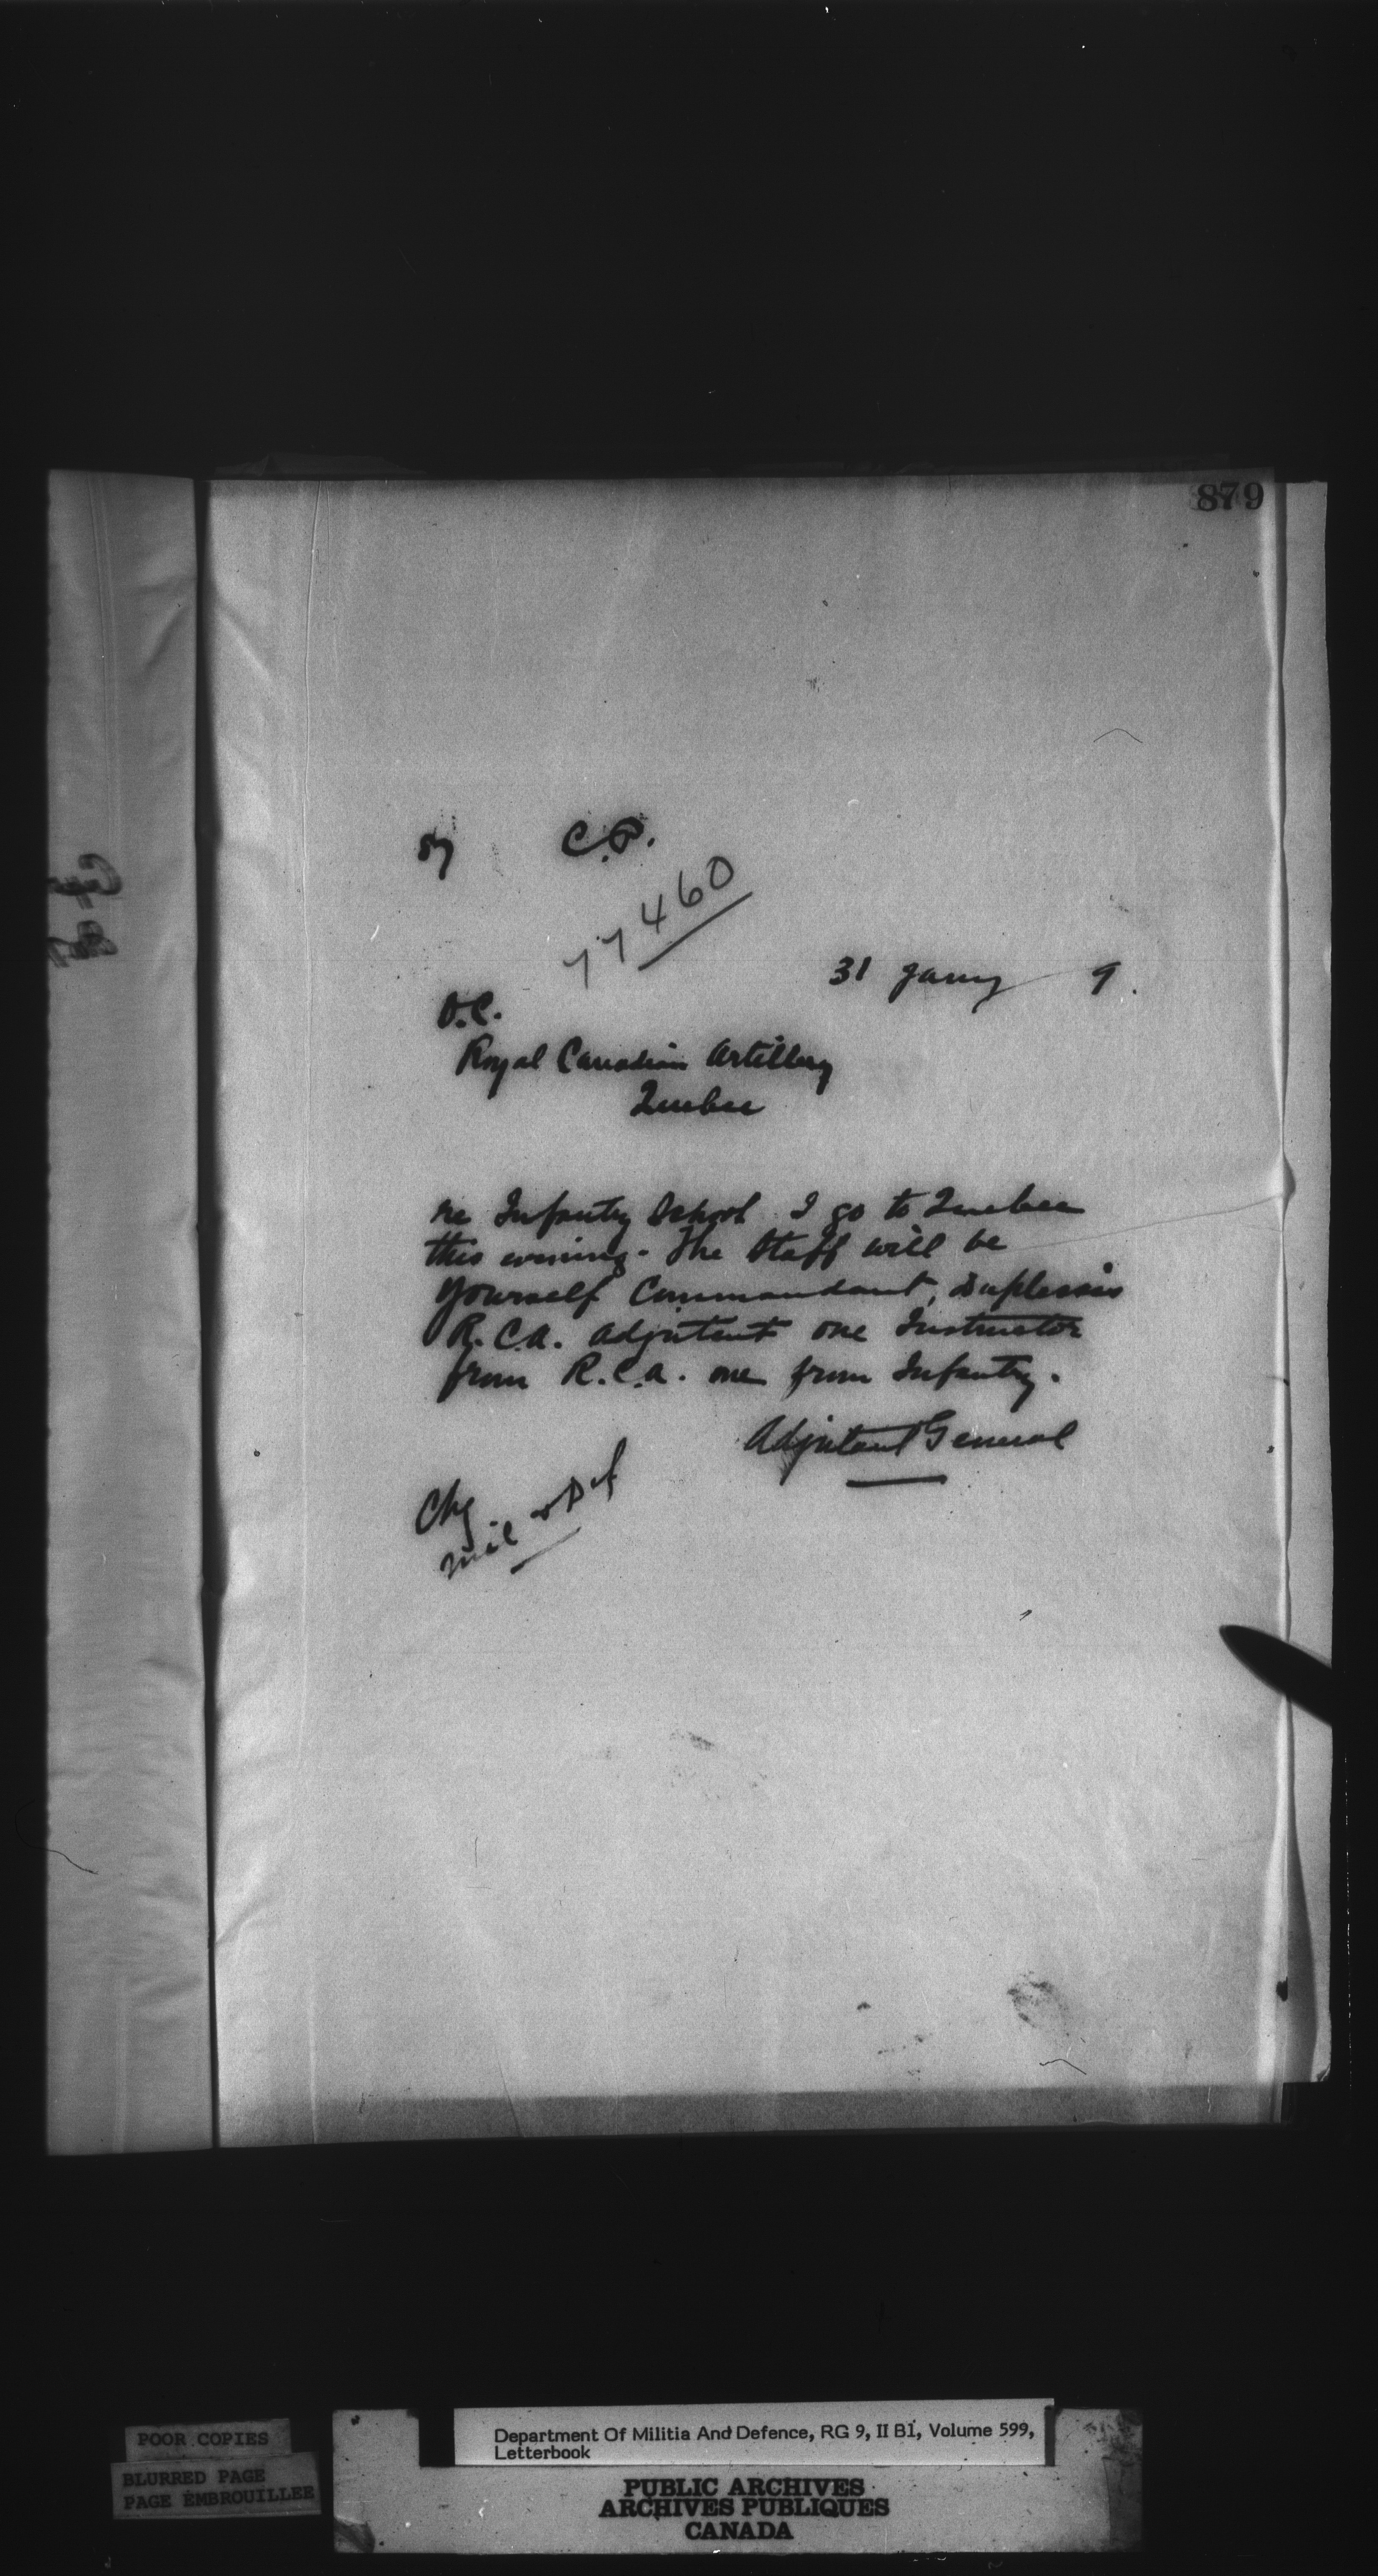 879
C.P.
77460
31 Jany 9.
O.C.
Royal Canadian Artillery
Quebec
re Infantry School I go to Quebec
this evening. The Staff will be
yourself Commandant, Duplessis
R.C.A. Adjutant one Instructor
from R.C.A. one from Infantry.
Adjutant General
Chg
Mil & Def
POOR COPIES
BLURRED PAGE
PAGE EMBROUILLEE
Department Of Militia And Defence, RG 9, II B1, Volume 599,
Letterbook
PUBLIC ARCHIVES
ARCHIVES PUBLIQUES
CANADA